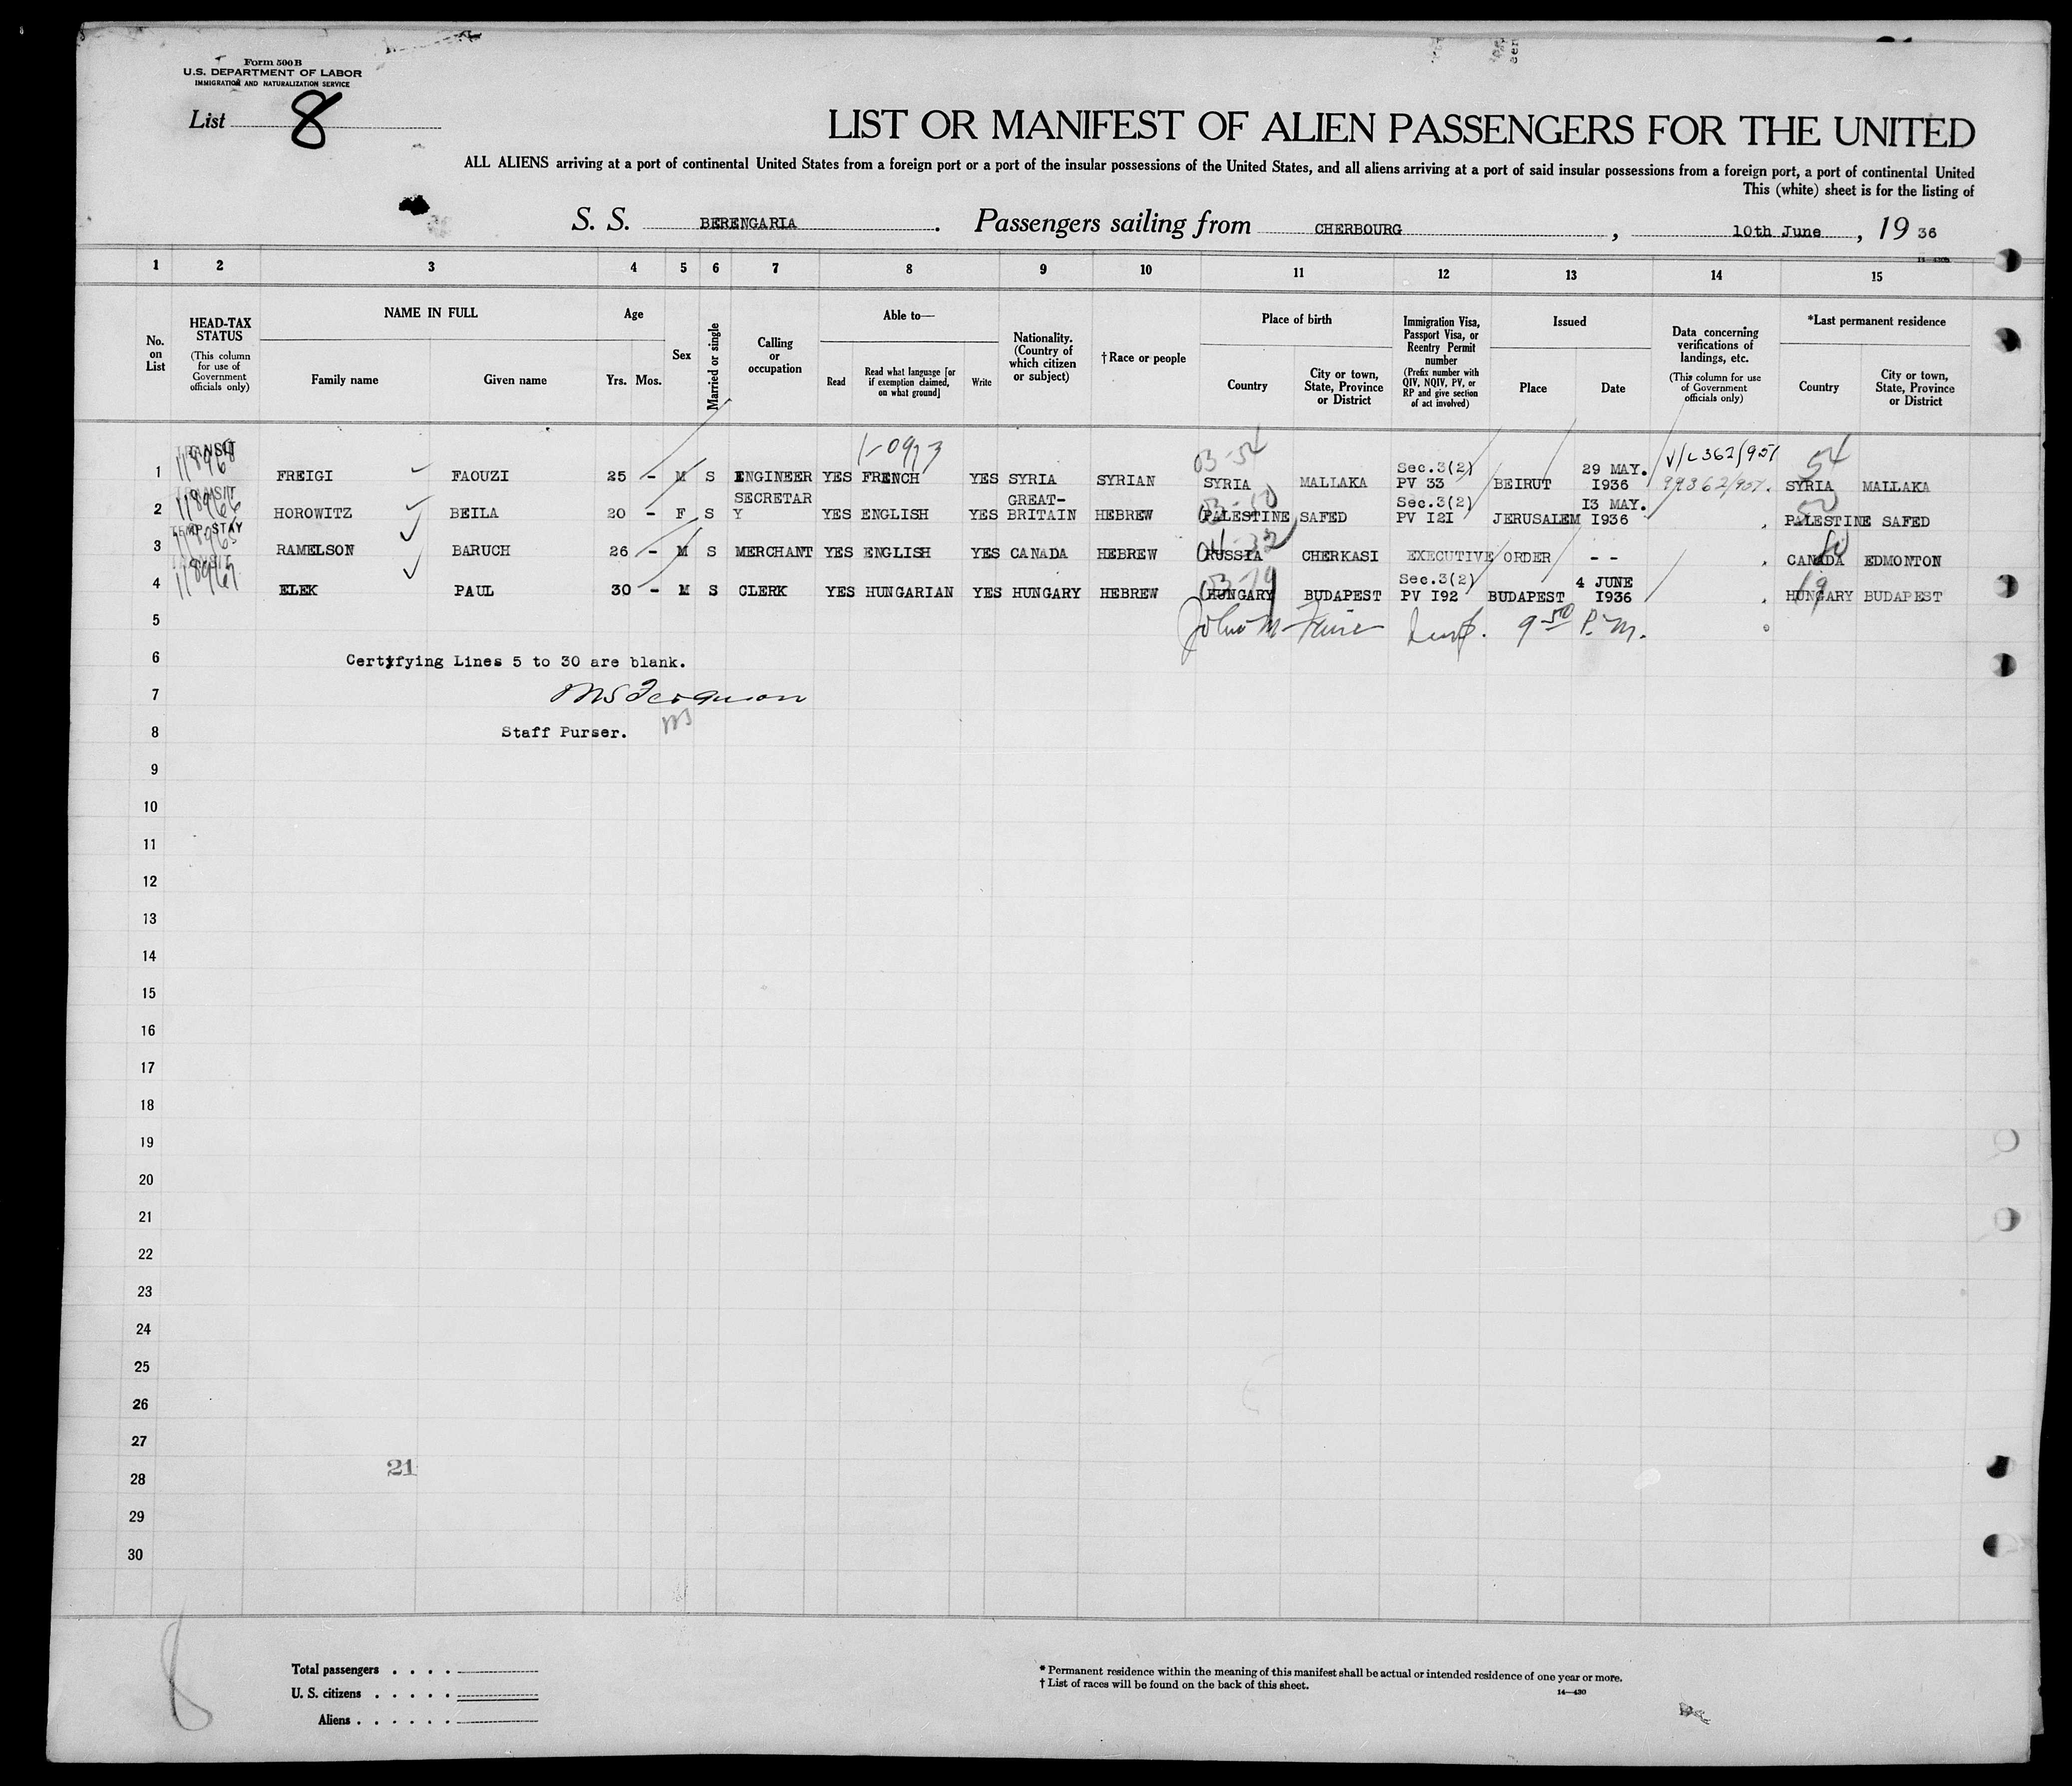 Form 500 B
U.S. DEPARTMENT OF LABOR
IMMIGRATION AND NATURALIZATION SERVICE
List 8
LIST OR MANIFEST OF ALIEN PASSENGERS FOR THE UNITED
ALL ALIENS arriving at a port of continental United States from a foreign port or a port of the insular possessions of the United States, and all aliens arriving at a port of said insular possessions from a foreign port, a port of continental United
This (white) sheet is for the listing of
S. S. BERENGARIA. Passengers sailing from CHERBOURG, 10th June, 1936
1 2 3 4 5 6 7 8 9 10 11 12 13 14 15
No. on List
HEAD-TAX STATUS (This column for use of Government officials only)
NAME IN FULL
Family name Given name
Age
Yrs. Mos.
Sex
Married or single
Calling or occupation
Able to—
Read Read what language [or if exemption claimed, on what ground] Write
Nationality. (Country of which citizen or subject)
†Race or people
Place of birth
Country City or town, State, Province or District
Immigration Visa, Passport Visa, or Reentry Permit number (Prefix number with QIV, NQIV, PV, or RP and give section of act involved)
Issued
Place Date
Data concerning verifications of landings, etc. (This column for use of Government officials only)
*Last permanent residence
Country City or town, State, Province or District
1 TRANSIT 118968 FREIGI FAOUZI 25 - M S ENGINEER YES FRENCH YES SYRIA SYRIAN 03-54 SYRIA MALLAKA Sec.3(2) PV 33 BEIRUT 29 MAY. I936 V/L 362/951 54 SYRIA MALLAKA
2 TRANSIT 118966 HOROWITZ BEILA 20 - F S SECRETARY YES ENGLISH YES GREAT-BRITAIN HEBREW PALESTINE SAFED Sec.3(2) PV I2I JERUSALEM I3 MAY. I936 50 PALESTINE SAFED
3 TEMP. STAY 118965 RAMELSON BARUCH 26 - M S MERCHANT YES ENGLISH YES CANADA HEBREW RUSSIA CHERKASI EXECUTIVE ORDER - - CANADA EDMONTON
4 TRANSIT 118967 ELEK PAUL 30 - M S CLERK YES HUNGARIAN YES HUNGARY HEBREW 03-19 HUNGARY BUDAPEST Sec.3(2) PV I92 BUDAPEST 4 JUNE I936 19 HUNGARY BUDAPEST
5 John M Insp. 9 50 P.M.
6 Certyfying Lines 5 to 30 are blank.
7 MS Ferguson
8 Staff Purser.
9
10
11
12
13
14
15
16
17
18
19
20
21
22
23
24
25
26
27
21
28
29
30
8
Total passengers
U. S. citizens
Aliens
* Permanent residence within the meaning of this manifest shall be actual or intended residence of one year or more.
† List of races will be found on the back of this sheet.
14—430